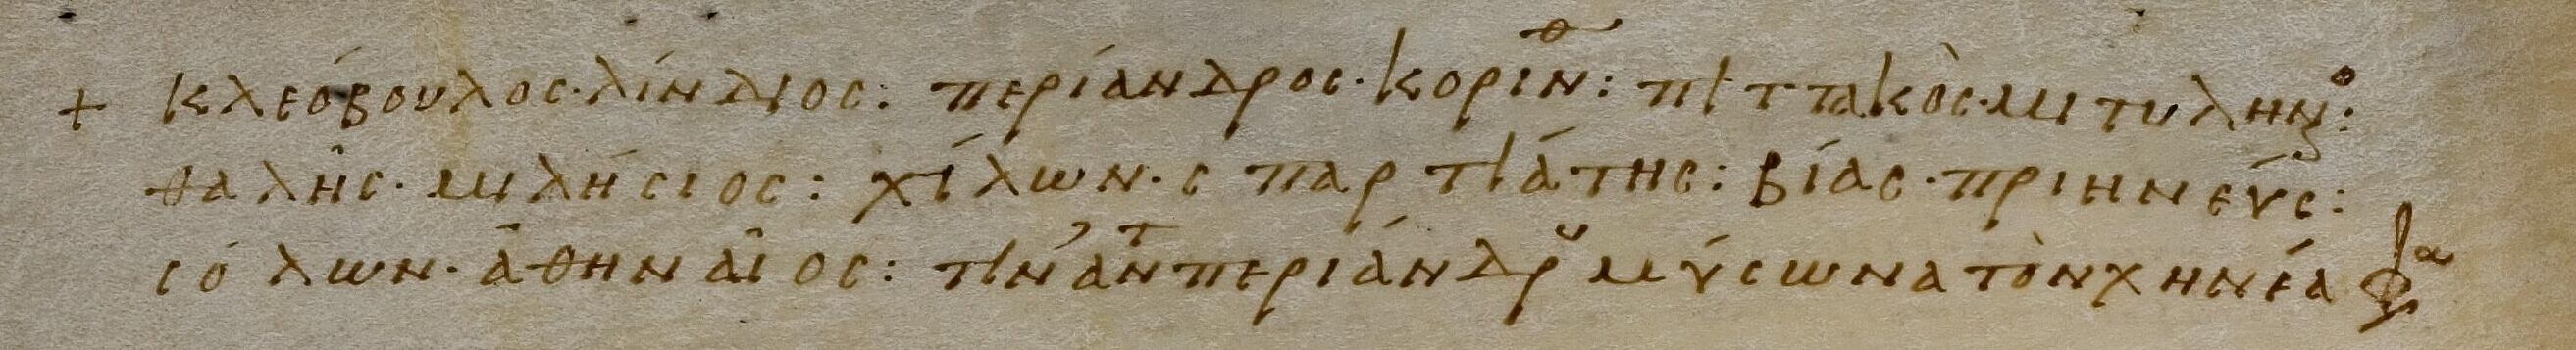 + κλεόβουλος· λίνδιος: περίανδρος· κοριν^θ: πιττακὸς· μιτυλην^ο:
θαλῆς· μιλήσιος: χίλων· σπαρτιάτης: βίας· πριηνεύς:
σόλων· ἀθηναῖος: τιν ἀν^τ περιάνδρου μύσωνα τὸν χηνέα φ^α